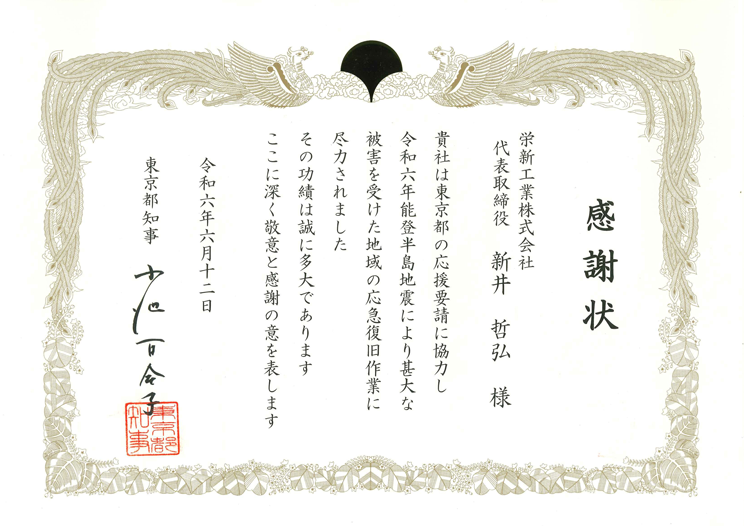 感謝状
栄新工業株式会社
代表取締役 新井 哲弘 様
貴社は東京都の応援要請に協力し
令和六年能登半島地震により甚大な
被害を受けた地域の応急復旧作業に
尽力されました
その功績は誠に多大であります
ここに深く敬意と感謝の意を表します
令和六年六月十二日
東京都知事 小池百合子
東京都
知事